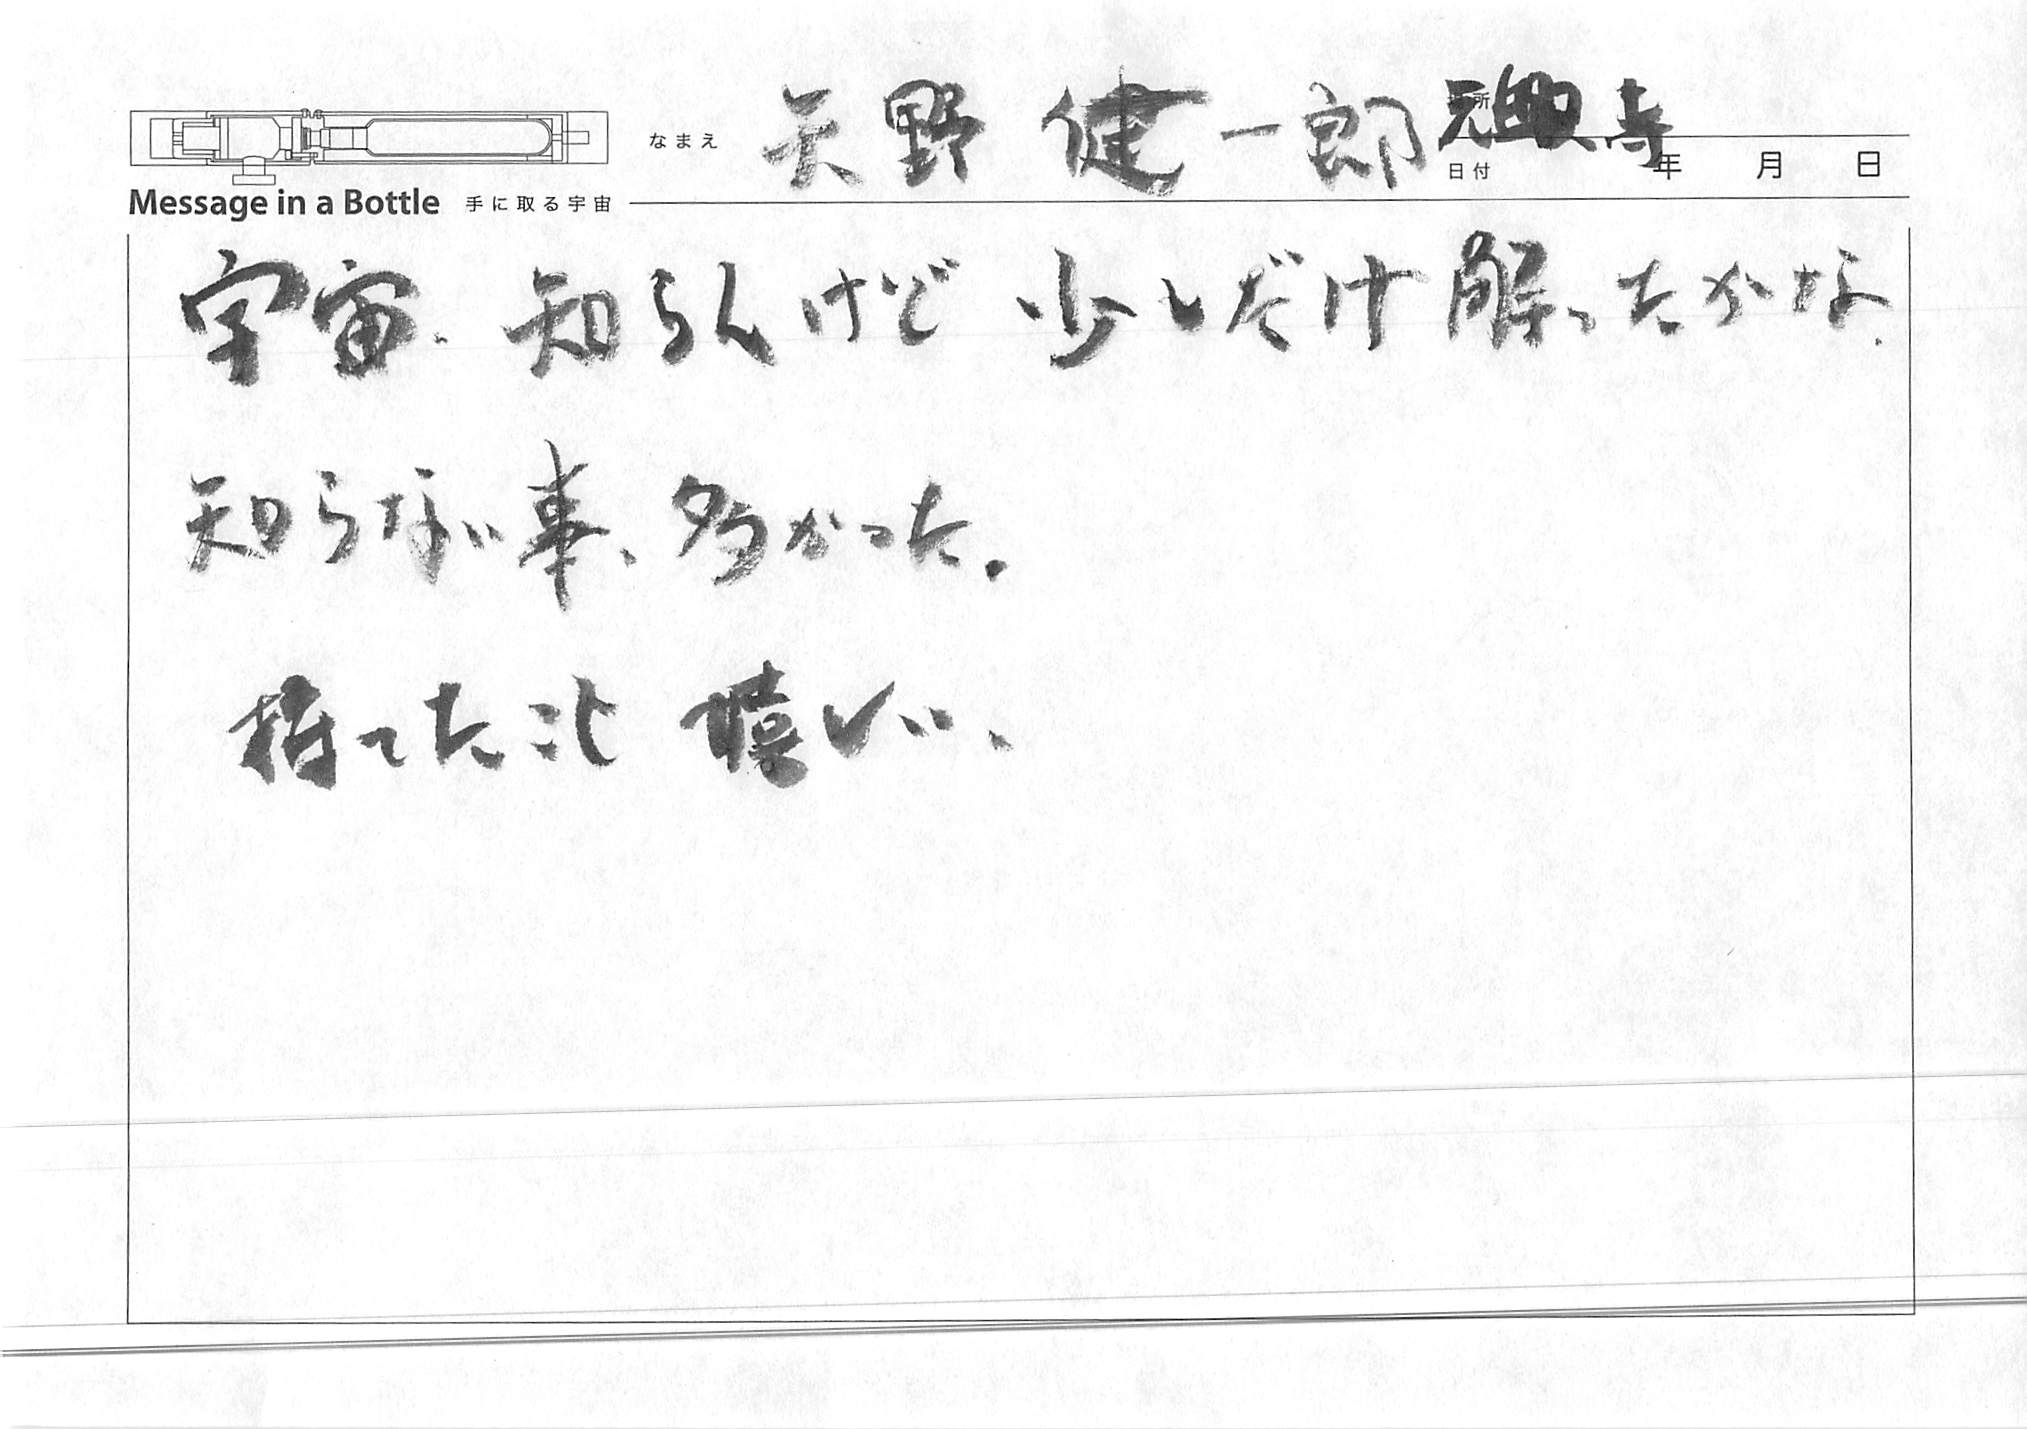 なまえ 矢野 健一郎 場所 元興寺
日付 年 月 日
Message in a Bottle 手に取る宇宙
宇宙、知らんけど 少しだけ解ったかな。
知らない事、多かった。
持てたこと 嬉しい、